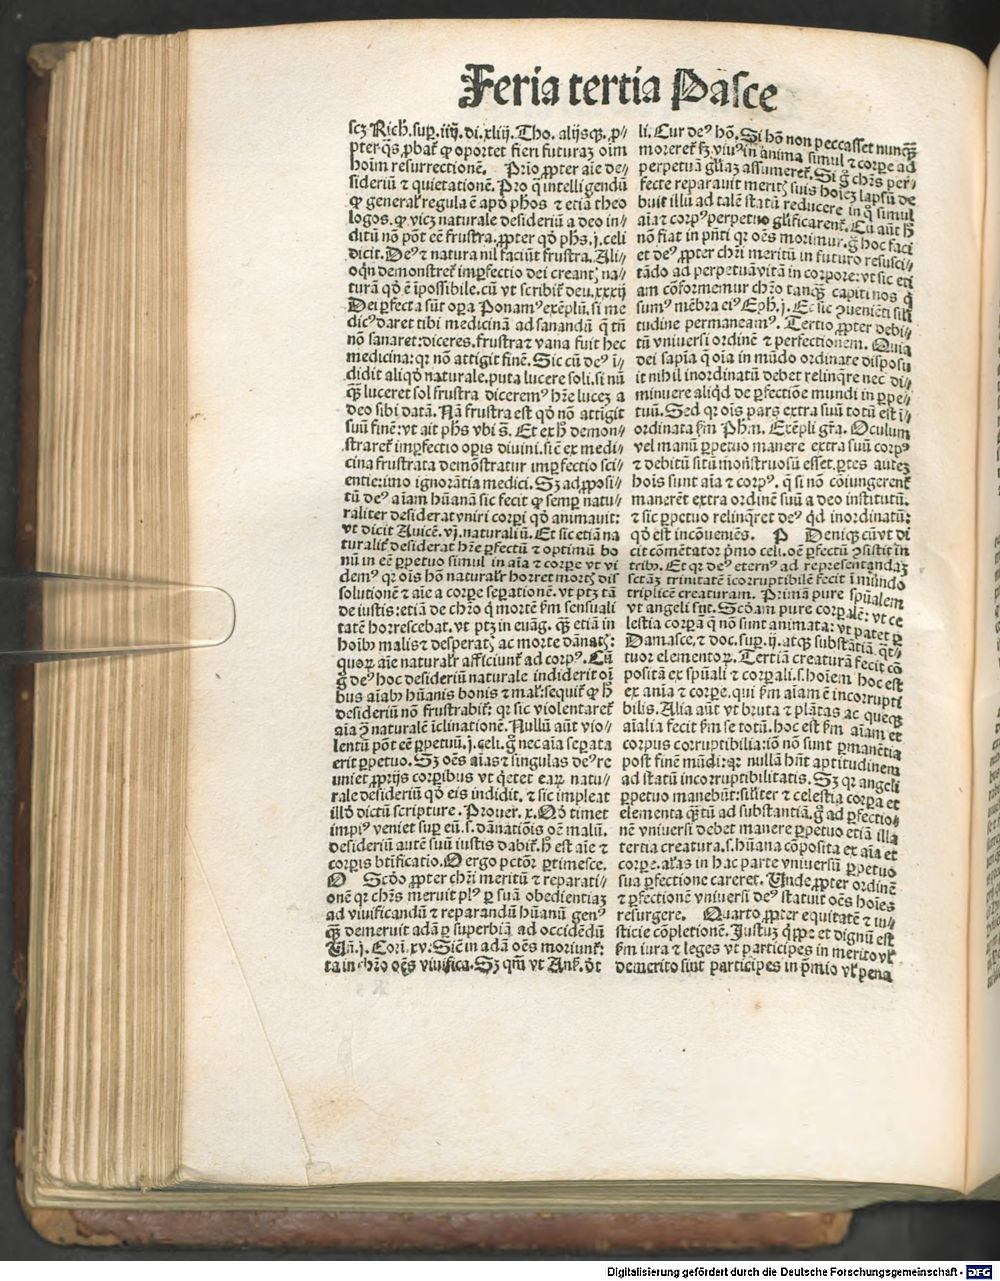 Feria tertia Pasce
scꝫ Rich̄. sup̱. iiij. di. xliij. Tho. alijsqꝫ. ꝓ⸗
pter q̄s ꝓbat̄ ꝙ oportet fieri futuraꝫ oīm
hoīm resurrectionē. Prīo ꝓpter aīe de⸗
sideriū ⁊ quietationē. Pro q̄ intelligendū
ꝙ general̄ regula ē apd̄ phōs ⁊ etiā theo
logos. ꝙ vicꝫ naturale desideriū a deo in⸗
ditū nō pōt eē frustra. ꝓpter qd̄ ph̄s. j. celi
dicit. Deꝰ ⁊ natura nil faciūt frustra. Ali⸗
oq̄n demonstret̄ imꝑfectio dei creantꝭ na⸗
turā qd̄ ē īpossibile. cū vt scribit̄ deu. xxxij
Dei ꝑfecta sūt oꝑa Ponamꝰ exēplū. si me
dicꝰ daret tibi medicinā ad sanandū q̄ tn̄
nō sanaret: diceres. frustra ⁊ vana fuit hec
medicina: qꝛ nō attigit finē. Sic cū deꝰ ī⸗
didit aliqd̄ naturale. puta lucere soli. si nū
qꝫ̄ luceret sol frustra diceremꝰ hr̄e lucē a
deo sibi datā. Nā frustra est qd̄ nō attigit
suū finē: vt ait ph̄s vbi s̄. Et ex h̄ demon⸗
straret̄ imꝑfectio oꝑis diuini. sic̄ ex medi⸗
cina frustrata demōstratur imꝑfectio sci⸗
entie: imo ignorātia medici. Sꝫ ad ꝓposi⸗
tū deꝰ aīam hūanā sic fecit ꝙ semꝑ natu⸗
raliter desiderat vniri corꝑi qd̄ animauit:
vt dicit Auicē. vj. naturaliū. Et sic etiā na
turalit̄ desiderat hr̄e ꝑfectū ⁊ optimū bo
nū in eē ꝑpetuo simul in aīa ⁊ corꝑe vt vi
demꝰ qꝛ oīs hō naturalr̄ horret mortꝭ dis
solutionē ⁊ aīe a corꝑe seꝑationē. vt ptꝫ tā
de iustis: etiā de chr̄o q̄ mortē ẜm sensuali
tatē horrescebat. vt ptꝫ in euāg. qꝫ̄ etiā in
hoībꝰ malis ⁊ desperatꝭ ac morte dānatꝭ:
quoꝝ aīe naturalr̄ afficiunt̄ ad corpꝰ. Cū
g̊ deꝰ hoc desideriū naturale indiderit oī
bus aīabꝰ hūanis bonis ⁊ mal̄: sequit̄ ꝙ h̄
desideriū nō frustrabit̄: qꝛ sic violentaret̄
aīa ꝯ̄ naturalē īclinationē. Nullū aūt vio⸗
lentū pōt eē ꝑpetuū. j. celi. g̊ nec aīa seꝑata
erit ꝑpetuo. Sꝫ oēs aīas ⁊ singulas deꝰ re
uniet ꝓprijs corꝑibus vt q̄etet eaꝝ natu⸗
rale desideriū qd̄ eis indidit. ⁊ sic impleat
illd̄ dictū scripture. Prouer. x. Qd̄ timet
impiꝰ veniet suꝑ eū. s. dānatiōis oē malū.
desideriū autē suū iustis dabit̄. h̄ est aīe ⁊
corꝑis btīficatio. O ergo pctōr ꝑtimesce.
O Scd̄o ꝓpter chr̄i meritū ⁊ reparati⸗
onē qꝛ chr̄s meruit plꝰ ꝑ suā obedientiaꝫ
ad viuificandū ⁊ reparandū hūanū genꝰ
qꝫ̄ demeruit adā ꝑ superbiā ad occidēdū
Uñ. j. Corī. xv. Sic̄ in adā oēs moriunt̄:
ita in chr̄o oēs viuifica. Sꝫ qm̄ vt Ans̄. dt̄
li. Cur deꝰ hō. Si hō non peccasset nunqꝫ̄
moreret̄ sꝫ viuꝰ in anima simul ⁊ corꝑe ad
perpetuā gl̄iaꝫ assumeret̄. Si g̊ chr̄s per⸗
fecte reparauit meritꝭ suis hoīeꝫ lapsū de
buit illū ad talē statū reducere in q̊ simul
aīa ⁊ corpꝰ perpetuo gl̄ificarent̄. Cū aūt h̄
nō fiat in pn̄ti qꝛ oēs morimur. g̊ hoc faci
et deꝰ. ꝓpter chr̄i meritū in futuro resusci⸗
tādo ad perpetuā vitā in corpore: vt sic eti
am cōformemur chr̄o tanqꝫ̄ capiti nos q̄
sumꝰ mēbra eiꝰ Eph̄. j. Et sic ꝯuenīenti sil̄i
tudine permaneamꝰ. Tertio ꝓpter debi⸗
tū vniuersi ordinē ⁊ perfectionem. Quia
dei sapīa q̄ oīa in mūdo ordinate disposu
it nihil inordinatū debet relinq̄re nec di⸗
minuere aliqd̄ de ꝑfectiōe mundi in ꝑpe⸗
tuū. Sed qꝛ oīs pars extra suū totū est ī⸗
ordinata ẜm Ph̄m. Exēpli gr̄a. Oculum
vel manū ꝑpetuo manere extra suū corpꝰ
⁊ debitū sitū monstruosū esset. ꝑtes auteꝫ
hoīs sunt aīa ⁊ corpꝰ. q̄ si nō cōiungerent̄
manerēt extra ordinē suū a deo institutū.
⁊ sic ꝑpetuo relinq̄ret deꝰ qd̄ inordinatū:
qd̄ est incōueniēs. P Deniqꝫ cū vt di
cit cōmētator pͥmo celi. oē ꝑfectū ꝯsistit in
tribꝰ. Et qꝛ deꝰ eternꝰ ad representandaꝫ
sctāꝫ trinitatē īcorruptibilē fecit ī mūdo
triplicē creaturam. Primā pure spūalem
vt angeli sūt. Scd̄am pure corꝑalē: vt ce
lestia corꝑa q̄ nō sunt animata: vt patet ꝑ
Damasce. ⁊ doc. suꝑ. ij. atqꝫ substātiā q̄t⸗
tuor elementoꝝ. Tertiā creaturā fecit cō
positā ex spūali ⁊ corꝑali. s. hoīem hoc est
ex anīa ⁊ corꝑe. qui ẜm aīam ē incorrupti
bilis. Alia aūt vt bruta ⁊ plātas ac queqꝫ
aīalia fecit ẜm se totū. hoc est ẜm aīam et
corpus corruptibilia: iō nō sunt ꝑmanētia
post finē mūdi: qꝛ nullā hn̄t aptitudinem
ad statū incorruptibilitatis. Sꝫ qꝛ angeli
ꝑpetuo manebūt: sil̄iter ⁊ celestia corꝑa et
elementa qꝫ̄tū ad substantiā. g̊ ad ꝑfectio⸗
nē vniuersi debet manere ꝑpetuo etiā illa
tertia creatura. s. hūana cōposita ex aīa et
corꝑe. al̄as in hac parte vniuersū ꝑpetuo
sua ꝑfectione careret. Unde ꝓpter ordinē
⁊ ꝑfectionē vniuersi deꝰ statuit oēs hoīes
resurgere. Quarto ꝓpter equitatē ⁊ iu⸗
sticie cōpletionē. Justuꝫ q̄ppe et dignū est
ẜm iura ⁊ leges vt participes in merito vl̄
demerito sint participes in p̄mio vl̄ pena
Digitalisierung gefördert durch die Deutsche Forschungsgemeinschaft - DFG